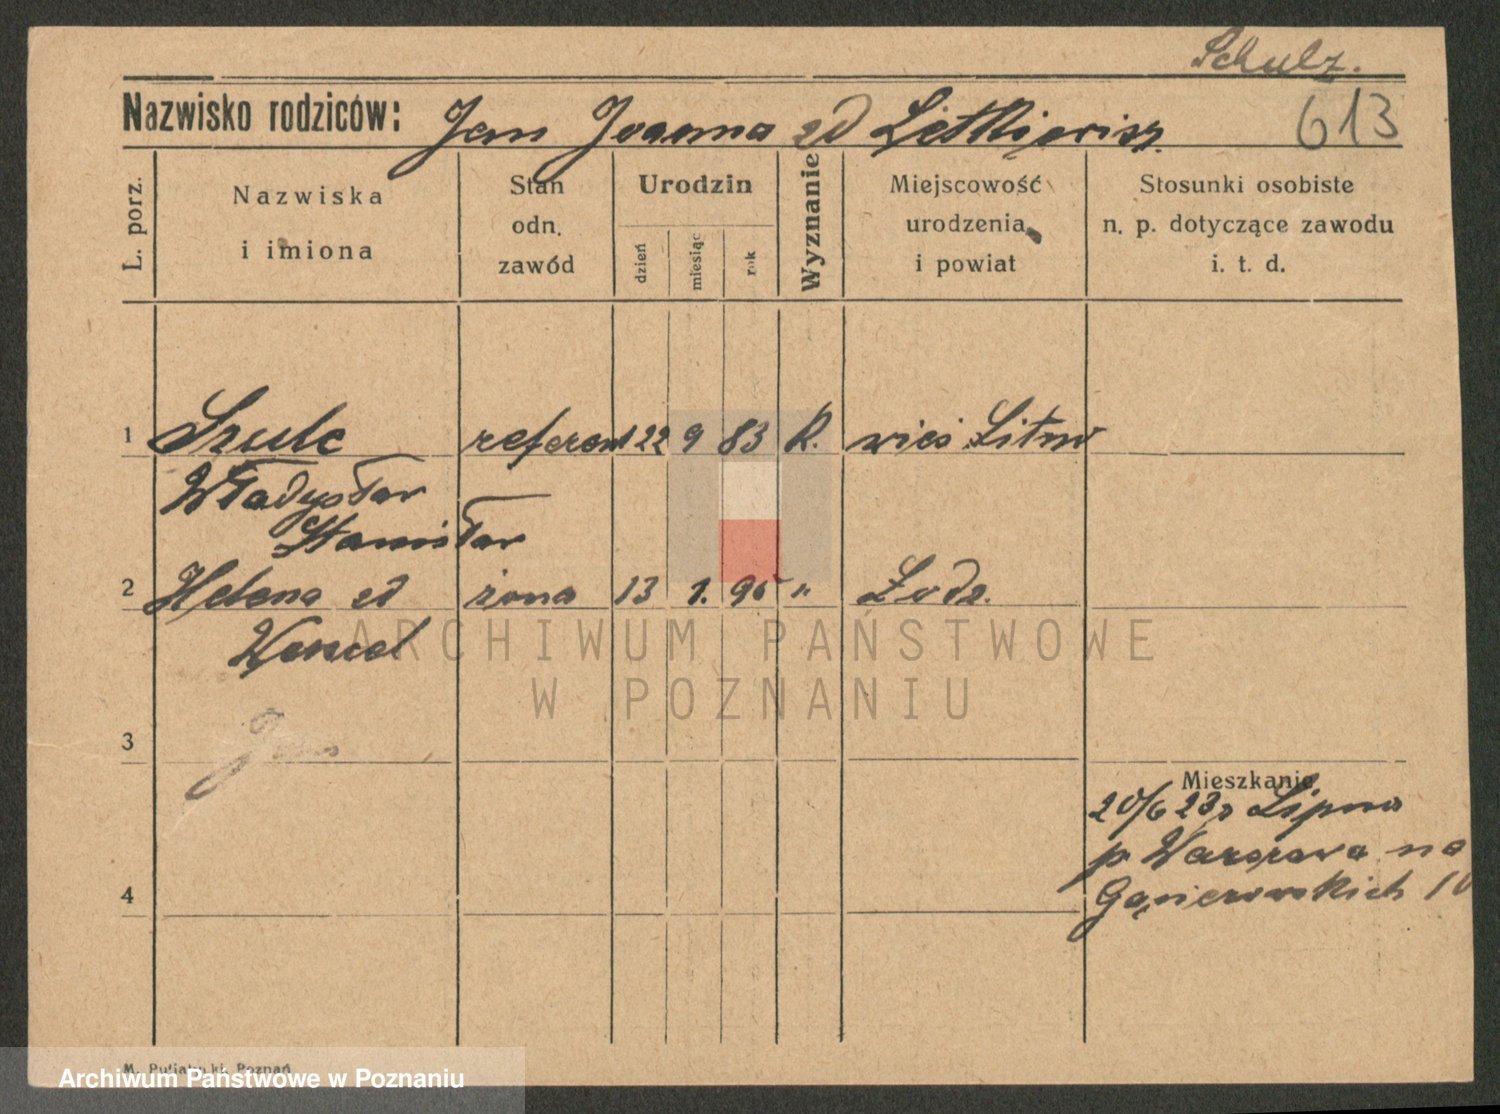 Schulz.
Nazwisko rodziców: Jan Joanna zd Letkiewicz
613
L. porz.
Nazwiska i imiona
Stan odn. zawód
Urodzin
dzień
miesiąc
rok
Wyznanie
Miejscowość urodzenia i powiat
Stosunki osobiste n. p. dotyczące zawodu i. t. d.
1 Szulc referent 22 9 83 R. wieś Litwa
Władysław
Stanisław
2 Helena zd żona 13 1. 95 " Łodz.
Wenzel
3 Jan
Mieszkanie
20/6 23 Lipno
p Warszawa na
4
M. Putiatycki, Poznań
ARCHIWUM PAŃSTWOWE
W POZNANIU
Archiwum Państwowe w Poznaniu